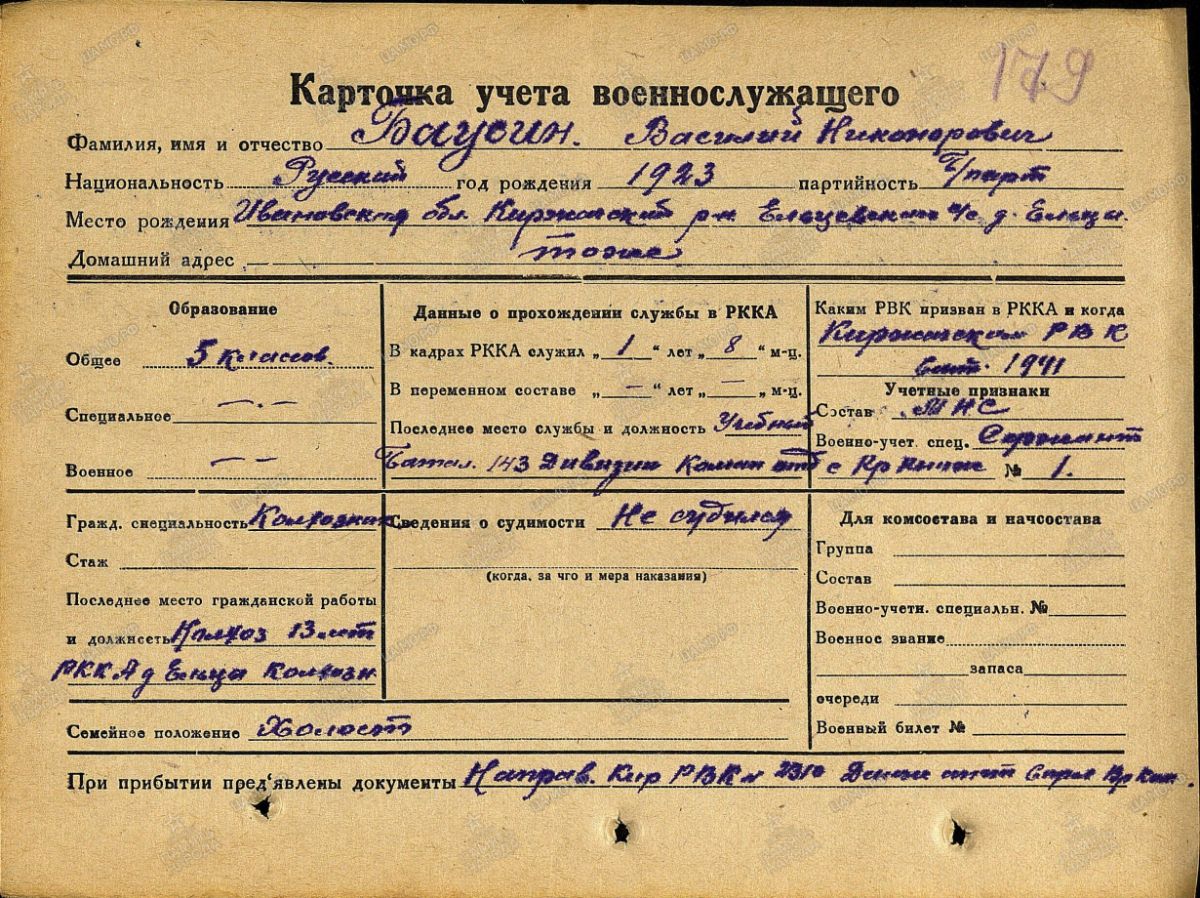 179
Карточка учета военнослужащего
Фамилия, имя и отчество Баусин. Василий Никонорович
Национальность Русский год рождения 1923 партийность Б/парт
Место рождения Ивановская обл. Киржачский р-н с/с д. Ельцы
Домашний адрес тоже
Образование
Общее 5 классов.
Специальное — . —
Военное — —
Данные о прохождении службы в РККА
В кадрах РККА служил „ 1 “ лет „ 8 “ м-ц.
В переменном составе „ — “ лет „ — „ м-ц.
Последнее место службы и должность Учебный
Батал. 143 Дивизии Коман отд
Каким РВК призван в РККА и когда
Киржачским РВК
1941
Учетные признаки
Состав МНС
Военно-учет. спец. Сержант
с Кр № 1.
Гражд. специальность Колхозник
Стаж
Последнее место гражданской работы
и должнесть Колхоз 13 лет
РККА д Колхозн
Сведения о судимости Не судился
(когда, за что и мера наказания)
Для комсостава и начсостава
Группа
Состав
Военно-учетн. специальн. №
Военное звание
запаса
очереди
Военный билет №
Семейное положение Холост
При прибытии пред'явлены документы Направ. Кир РВК № 2310